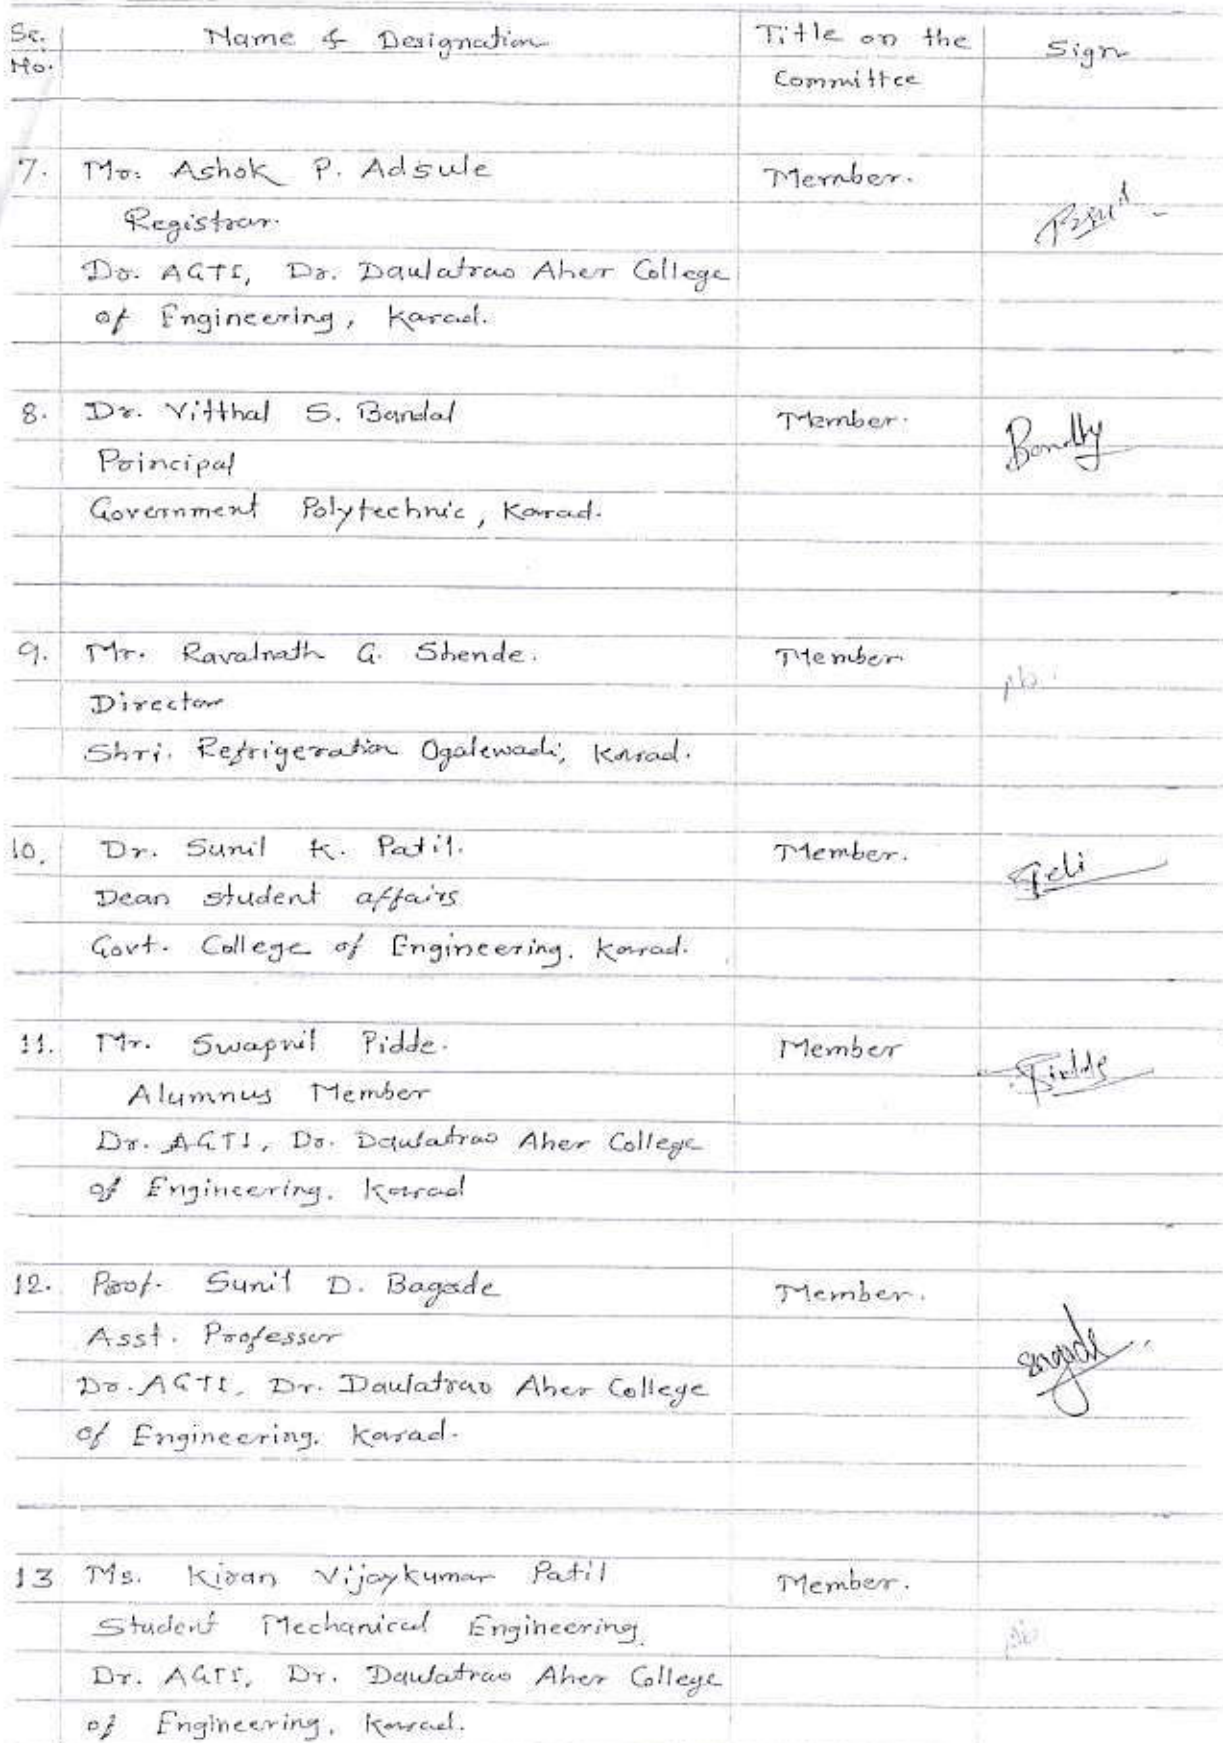 Sr. Name & Designation Title on the Sign
No. Committee
7. Mr. Ashok P. Adsule Member.
Registrar.
Dr. AGTI, Dr. Daulatrao Aher College
of Engineering, Karad.
8. Dr. Vitthal S. Bandal Member.
Principal
Government Polytechnic, Karad.
9. Mr. Ravalnath G. Shende. Member
Ab.
Director
Shri. Refrigeration Ogalewadi, Karad.
10. Dr. Sunil K. Patil. Member.
Dean student affairs
Govt. College of Engineering. Karad.
11. Mr. Swapnil Pidde. Member
Alumnus Member
Dr. AGTI, Dr. Daulatrao Aher College
of Engineering. Karad
12. Prof. Sunil D. Bagade Member.
Asst. Professor
Dr. AGTI, Dr. Daulatrao Aher College
of Engineering. Karad.
13 Ms. Kiran Vijaykumar Patil Member.
Student Mechanical Engineering. Ab
Dr. AGTI, Dr. Daulatrao Aher College
of Engineering, Karad.